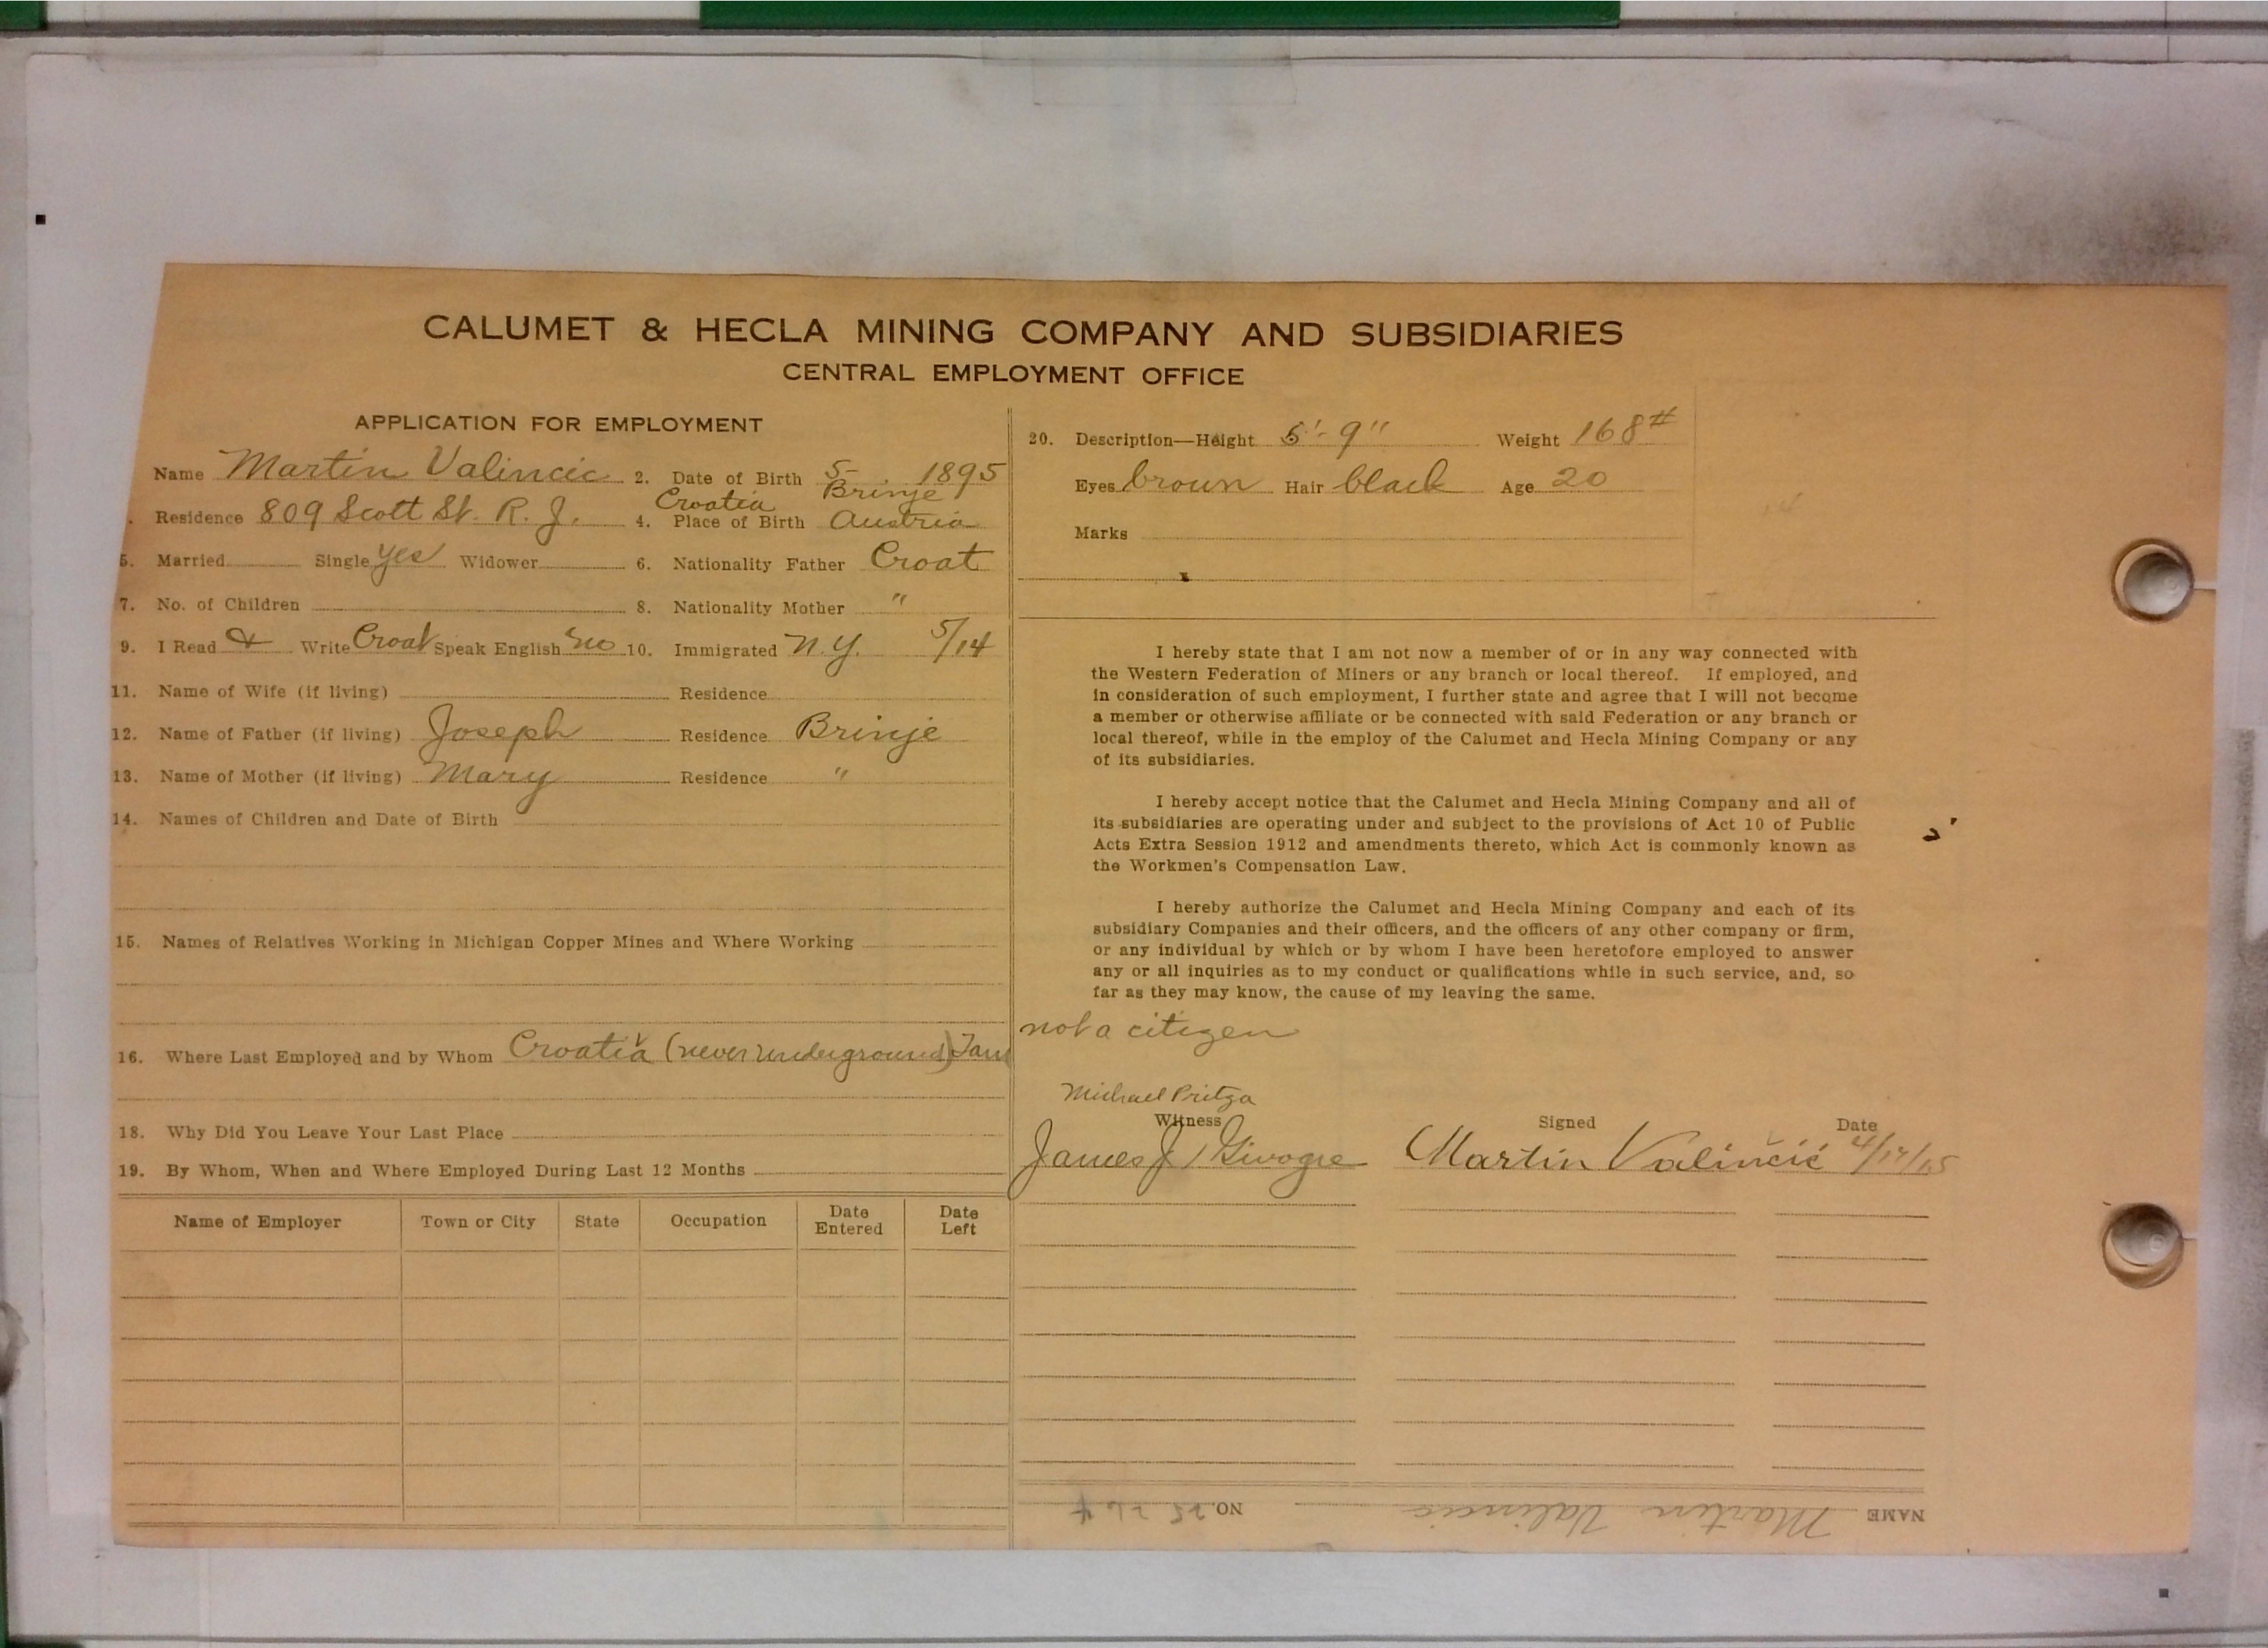 CALUMET & HECLA MINING COMPANY AND SUBSIDIARIES
CENTRAL EMPLOYMENT OFFICE
APPLICATION FOR EMPLOYMENT
Name Martin Valincic 2. Date of Birth 5- 1895
Residence 809 Scott St. R. J. 4. Place of Birth Croatia Brinje Austria
5. Married Single yes Widower 6. Nationality Father Croat
7. No. of Children 8. Nationality Mother "
9. I Read & Write Croat Speak English no 10. Immigrated N.Y. 5/14
11. Name of Wife (if living) Residence
12. Name of Father (if living) Joseph Residence Brinje
13. Name of Mother (if living) Mary Residence "
14. Names of Children and Date of Birth
15. Names of Relatives Working in Michigan Copper Mines and Where Working
16. Where Last Employed and by Whom Croatia (never underground)
18. Why Did You Leave Your Last Place
19. By Whom, When and Where Employed During Last 12 Months
Name of Employer Town or City State Occupation Date Entered Date Left
20. Description—Height 5'-9" Weight 168#
Eyes brown Hair black Age 20
Marks
I hereby state that I am not now a member of or in any way connected with
the Western Federation of Miners or any branch or local thereof. If employed, and
in consideration of such employment, I further state and agree that I will not become
a member or otherwise affiliate or be connected with said Federation or any branch or
local thereof, while in the employ of the Calumet and Hecla Mining Company or any
of its subsidiaries.
I hereby accept notice that the Calumet and Hecla Mining Company and all of
its subsidiaries are operating under and subject to the provisions of Act 10 of Public
Acts Extra Session 1912 and amendments thereto, which Act is commonly known as
the Workmen's Compensation Law.
I hereby authorize the Calumet and Hecla Mining Company and each of its
subsidiary Companies and their officers, and the officers of any other company or firm,
or any individual by which or by whom I have been heretofore employed to answer
any or all inquiries as to my conduct or qualifications while in such service, and, so
far as they may know, the cause of my leaving the same.
not a citizen
Michael Pritza
Witness Signed Date
James J Martin Valinčić
NAME Martin Valincic NO.